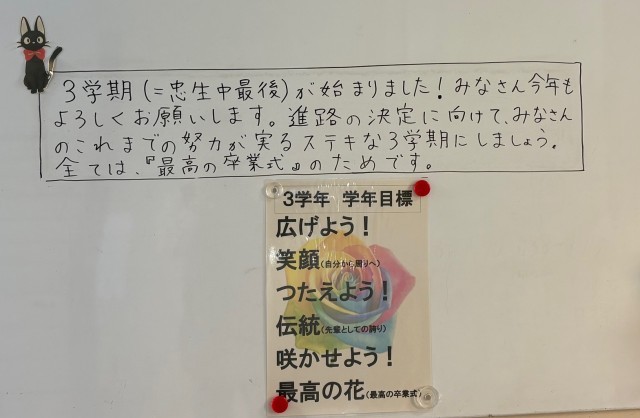 3学期(=忠生中最後)が始まりました！みなさん今年も
よろしくお願いします。進路の決定に向けて、みなさん
のこれまでの努力が実るステキな3学期にしましょう。
全ては、『最高の卒業式』のためです。
3学年 学年目標
広げよう！
笑顔(自分から周りへ)
つたえよう！
伝統(先輩としての誇り)
咲かせよう！
最高の花(最高の卒業式)